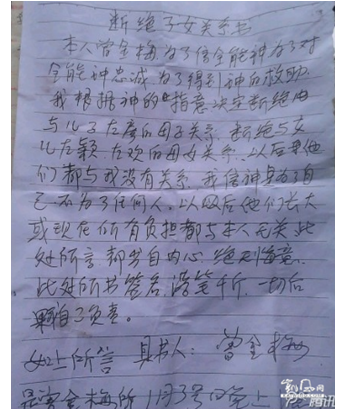 断绝子女关系书
本人曾金梅为了信全能神为了对
全能神忠诚为了得到神的救助
我根据神的指意决定断绝曲
与儿子左康的母子关系 断绝与女
儿左颖、左欢的母女关系、以后畢他
们都与我没有关系、我信神是为了自
己不为了任何人。以级后他们长大
或现在所有负担都与本人无关 此
处所言 都出自内心 绝无悔意
此处所书签名 落笔千斤、一切后
果自己负责。
如上所言 具书人: 曾金梅
曾金梅 1月3号 晚上
腾讯